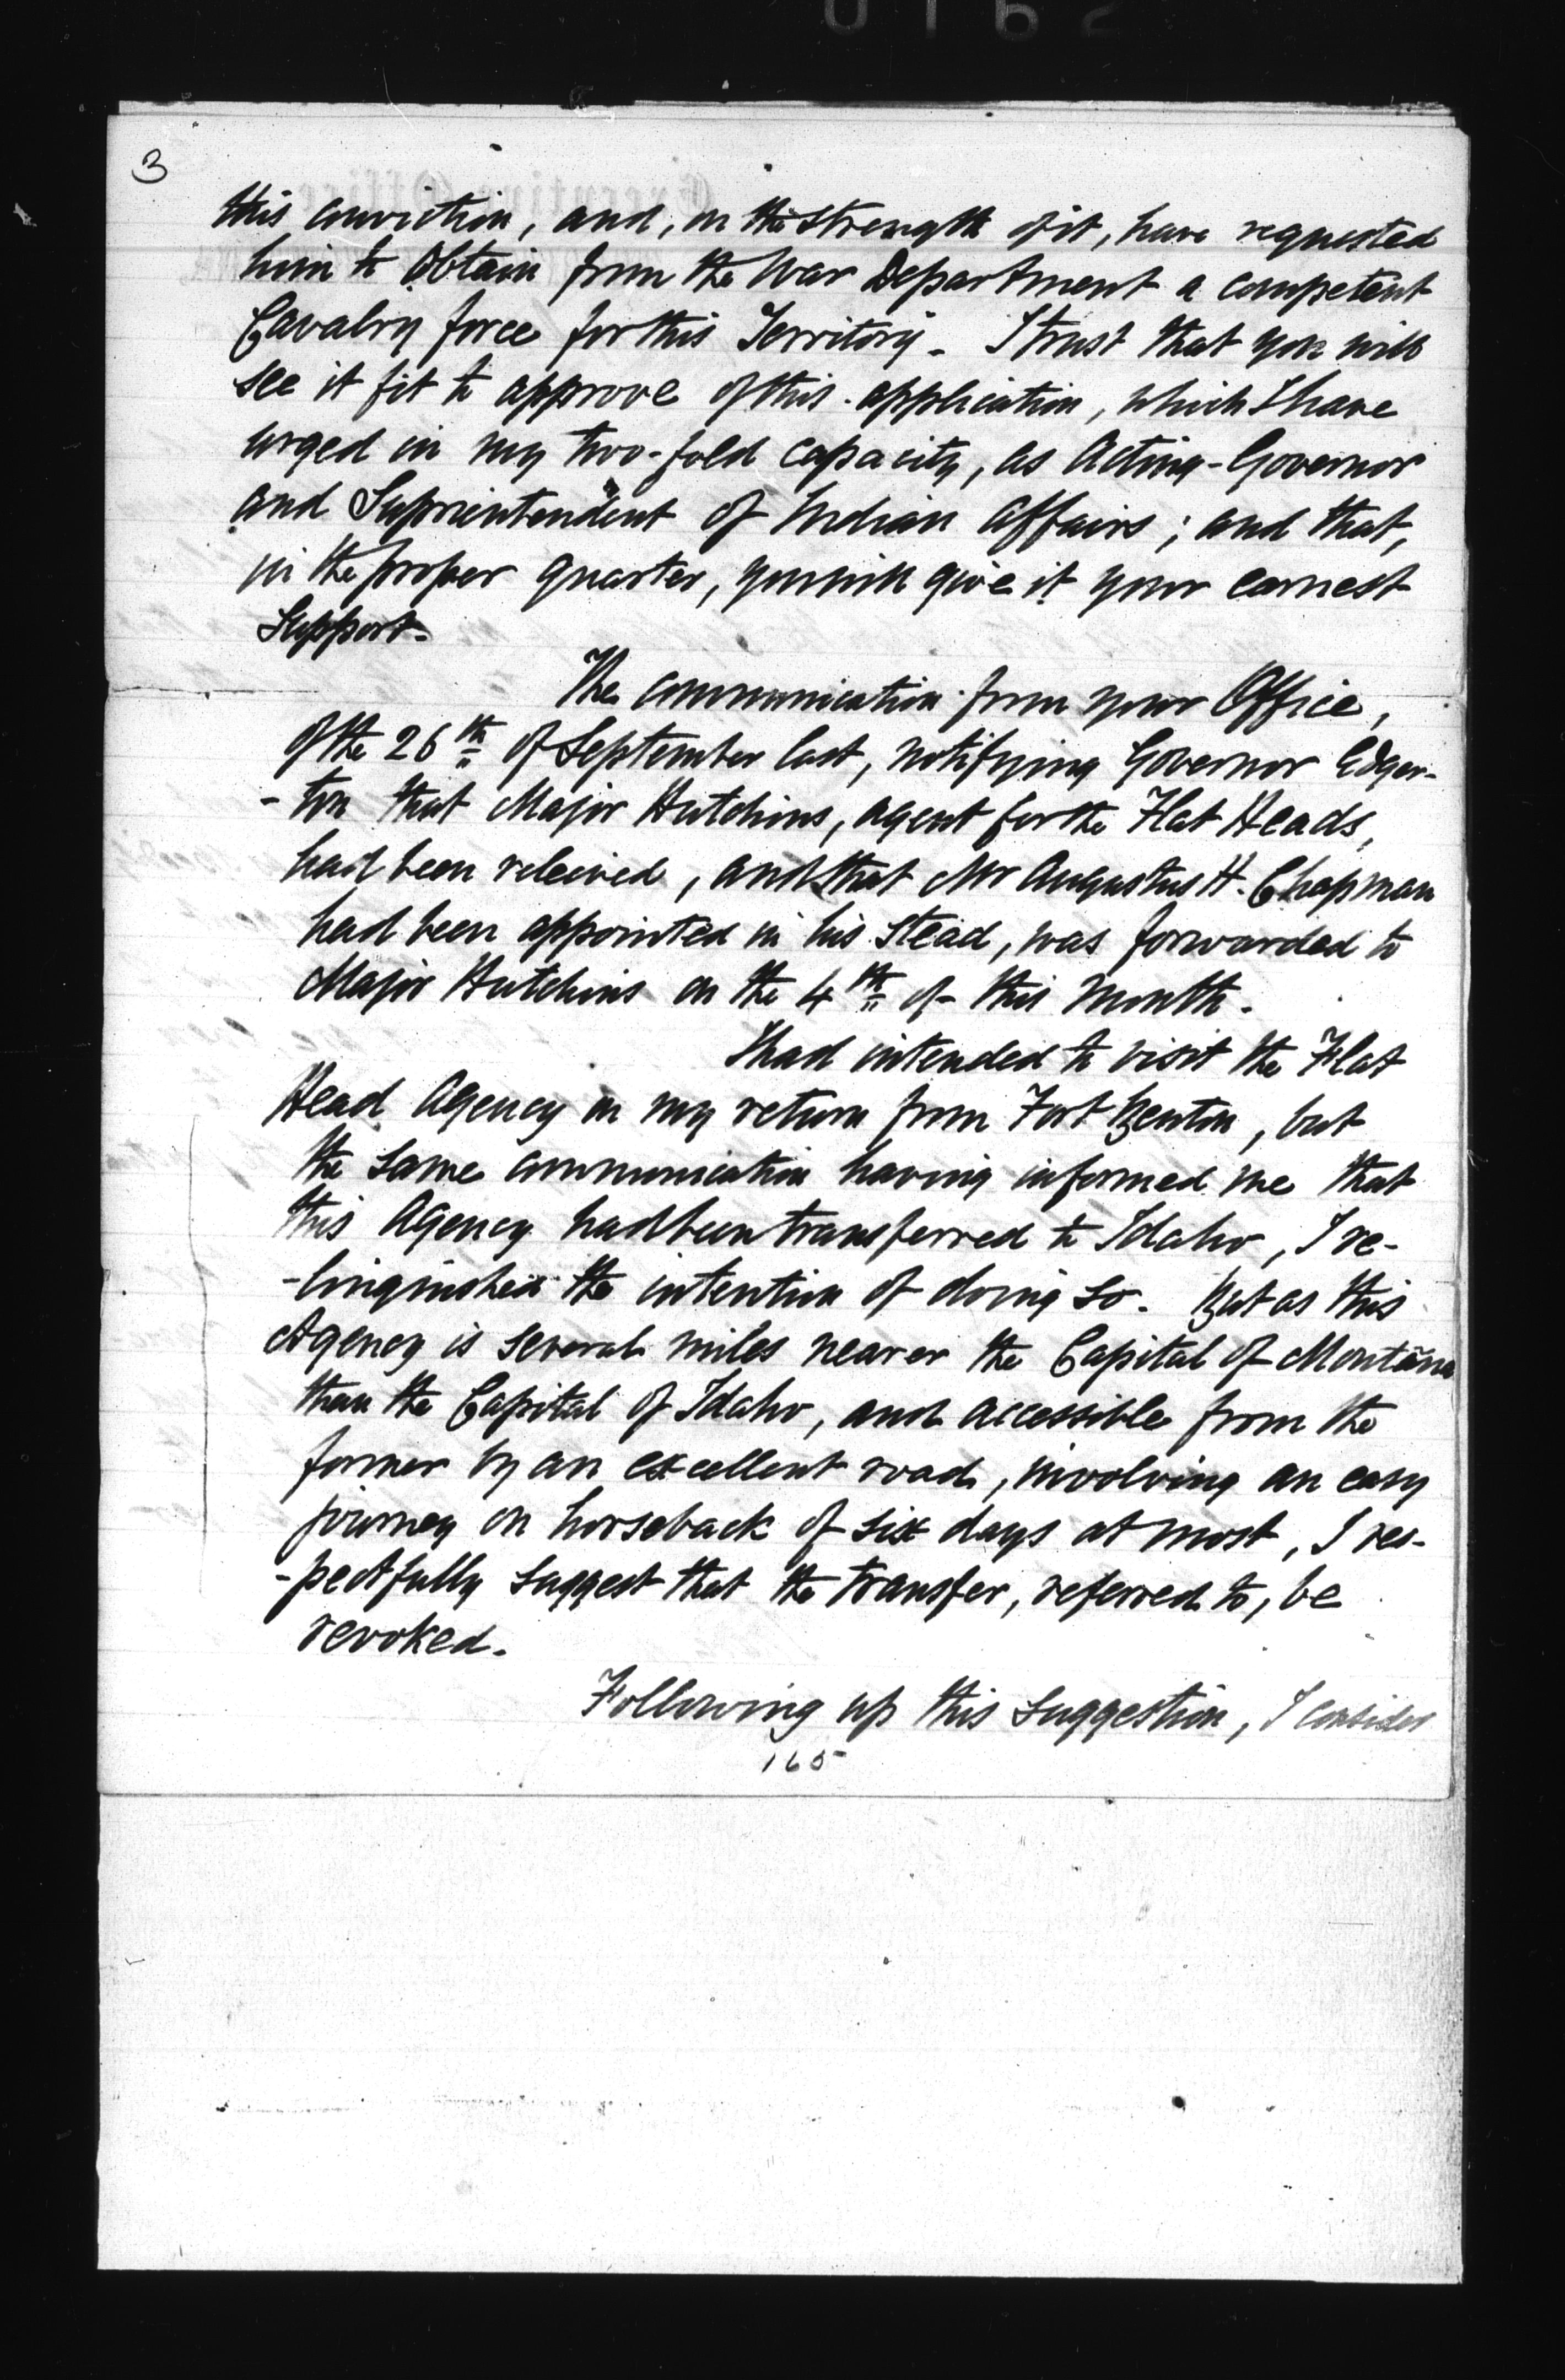 3
this conviction, and, on the strength of it, have requested
him to obtain from the War Department a competent
Cavalry force for this Territory. I trust that you will
see it fit to approve of this application, which I have
urged in my two-fold capacity, as Acting-Governor
and Suprientendent of Indian Affairs; and that,
in the proper quarter, you will give it your earnest
support.
The communication from your Office,
of the 26th of September last, notifying Governor Edger-
-ton that Major Hutchins, agent for the Flat Heads,
had been releived, and that Mr Augustus H. Chapman
had been appointed in his stead, was forwarded to
Major Hutchins on the 4th of this month.
I had intended to visit the Flat
Head Agency on my return from Fort Benton, but
the same communication having informed me that
this Agency had been transferred to Idaho, I re-
-linquished the intention of doing so. But as this
Agency is several miles nearer the Capital of Montana
than the Capital of Idaho, and accessible from the
former by an excellent road, involving an easy
journey on horseback of six days at most, I res-
-pectfully suggest that the transfer, referred to, be
revoked.
Following up this suggestion, I consider
165